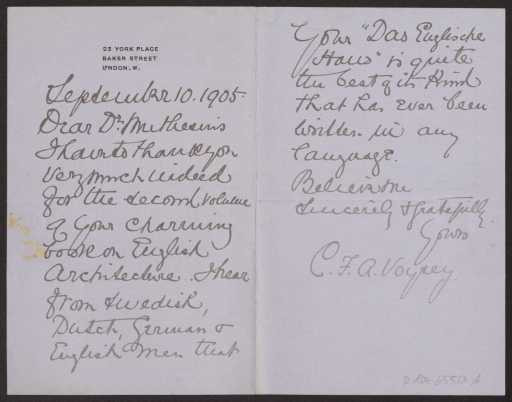 23 YORK PLACE
BAKER STREET
LONDON, W.
September 10. 1905.
Dear Dr. Muthesius
I have to thank you
very much indeed
for the second volume
of your charming
book on English
Architecture. I hear
from Swedish,
Dutch, German &
English men that
Your "Das Englische
Haus" is quite
the best of its kind
that has ever been
written in any
language.
Believe me
Sincerely & gratefully
Yours
C. F. A. Voysey